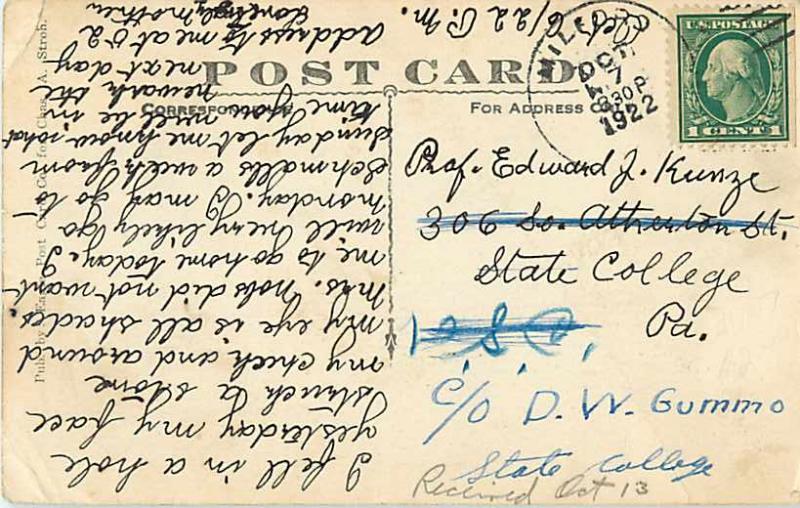 POST CARD
CORRESPONDENCE
FOR ADDRESS ONLY
U.S. POSTAGE
1 CENT 1
MILFORD
OCT
7
830P
1922
Prof. Edward J. Kunze
306 So. Atherton St.
State College
Pa.
C/O D. W. Gummo
State College
Received Oct 13
Oct 6/22 P.M.
I fell in a hole
yesterday my face
struck a stone
my cheek and around
my eye is all shades.
Mrs. did not want
me to go home today. I
will very likely go
Monday. I may go to
Schmalls a week from
Sunday let me know what
time you will be in
Newark the
next day
address to me at 52
Loving Mother
Pub. by Post Card Co. for Chas. A. Stroh.